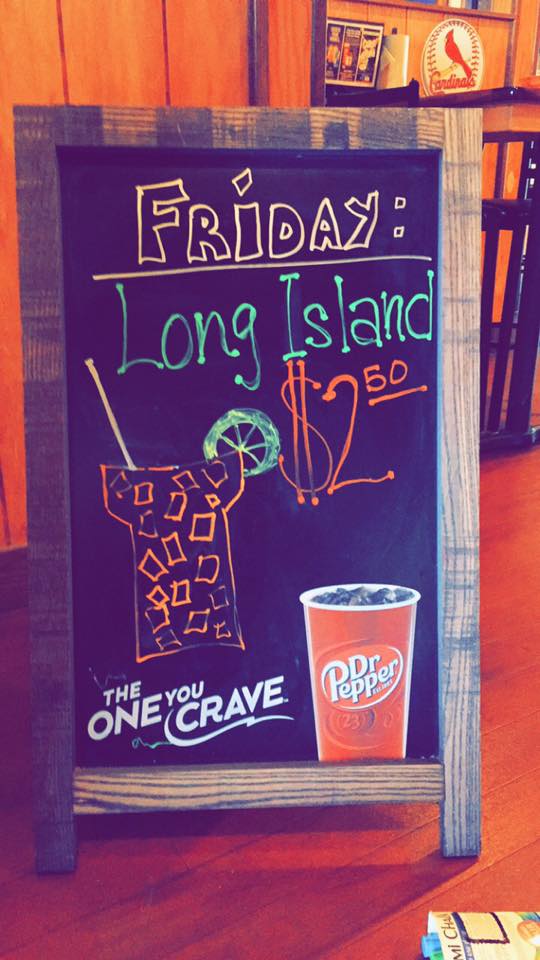 Cardinals
FRIDAY:
Long Island
$2.50
THE
ONE YOU
CRAVE
Dr
Pepper
23
MI CHA